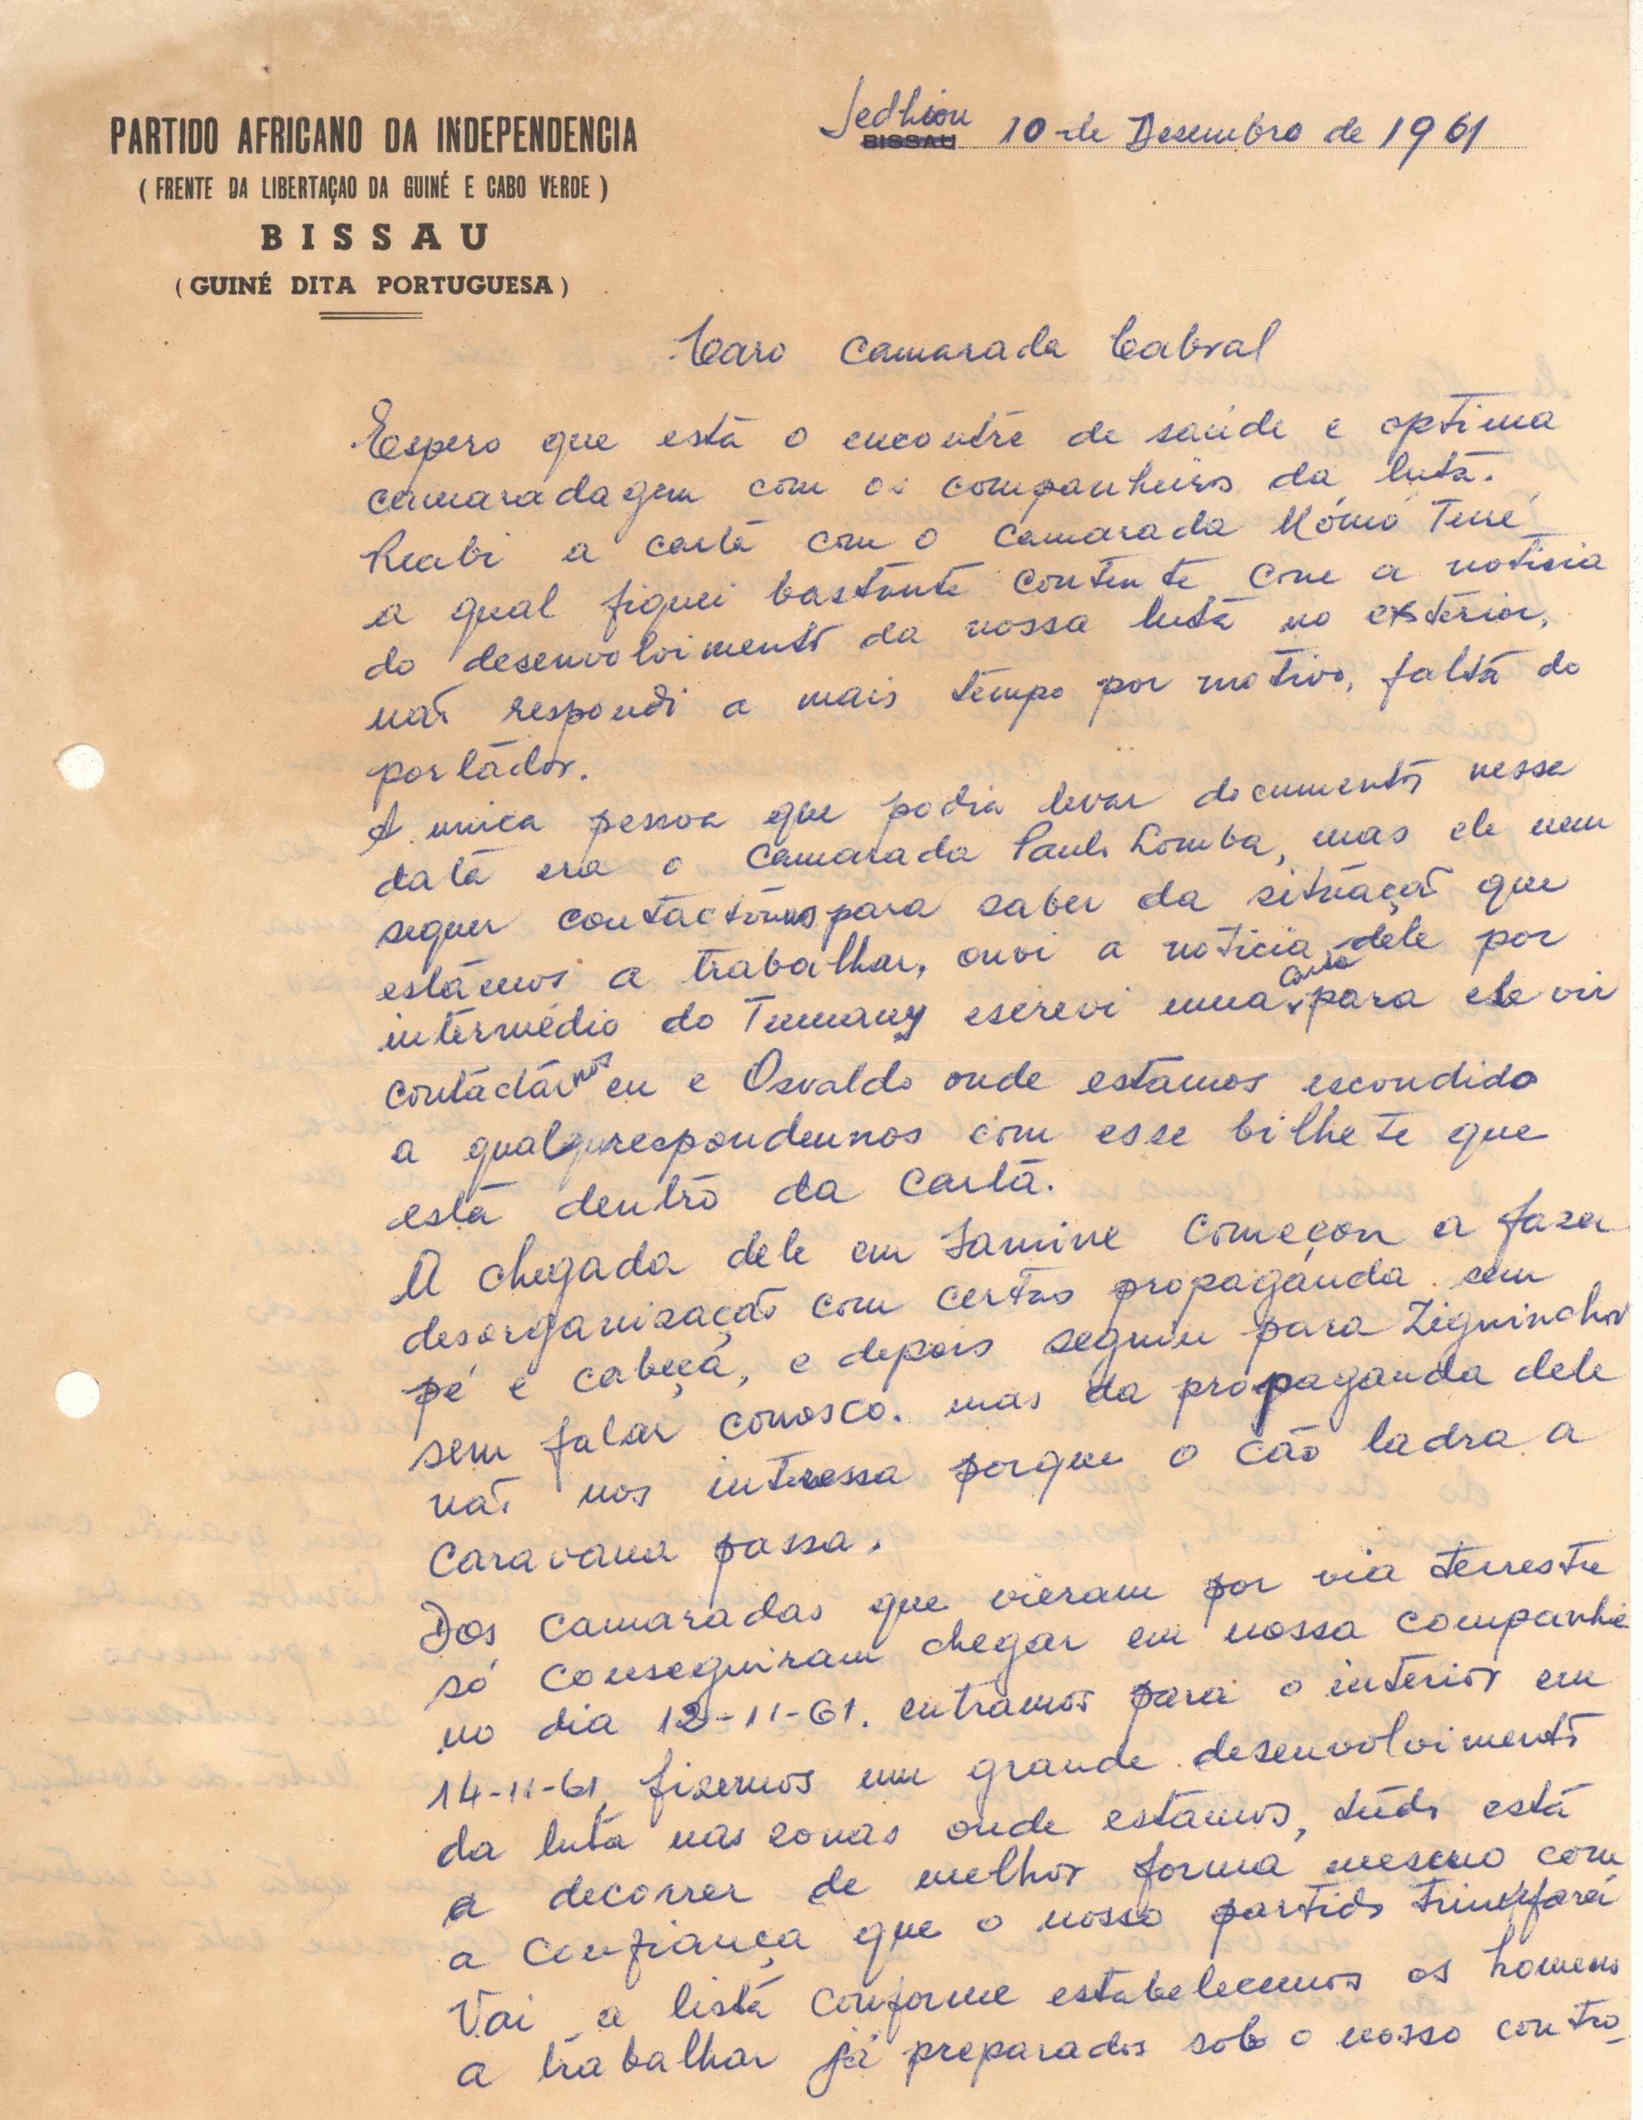 PARTIDO AFRICANO DA INDEPENDENCIA
( FRENTE DA LIBERTAÇAO DA GUINÉ E CABO VERDE )
BISSAU
( GUINÉ DITA PORTUGUESA )
Sedhiou
BISSAU 10 de Desembro de 1961
Caro Camarada Cabral
Espero que está o encontre de saúde e optima
camaradagem com os companheiros da luta.
Recebi a carta com o Camarada Mómó Turé
a qual fiquei bastante contente com a noticia
do desenvolvimento da nossa luta no exterior,
não respondi a mais tempo por motivo, falta do
portador.
A unica pessoa que podia levar documentos nessa
data era o Camarada Paulo Lomba, mas ele nem
sequer contactou-nos para saber da situação que
estámos a trabalhar, ouvi a noticia dele por
intermédio do Tumany escrevi uma carta para ele vir
contactar nos eu e Osvaldo onde estamos escondido
a qual respondeu nos com esse bilhete que
está dentro da carta.
A chegada dele em Samine começou a fazer
desorganisação com certas propaganda sem
pé e cabeça, e depois seguiu para Ziguinchor
sem falar conosco. mas da propaganda dele
não nos interessa porque o cão ladra a
caravana passa.
Dos camaradas que vieram por via terrestre
só conseguiram chegar em nossa companhia
no dia 12-11-61. entramos para o interior em
14-11-61, fizemos um grande desenvolvimento
da luta nas zonas onde estamos, túdo está
a decorrer de melhor forma mesmo com
a confiança que o nosso partido triunfará
Vai a lista conforme estabelecemos os homens
a trabalhar já preparados sob o nosso contro_